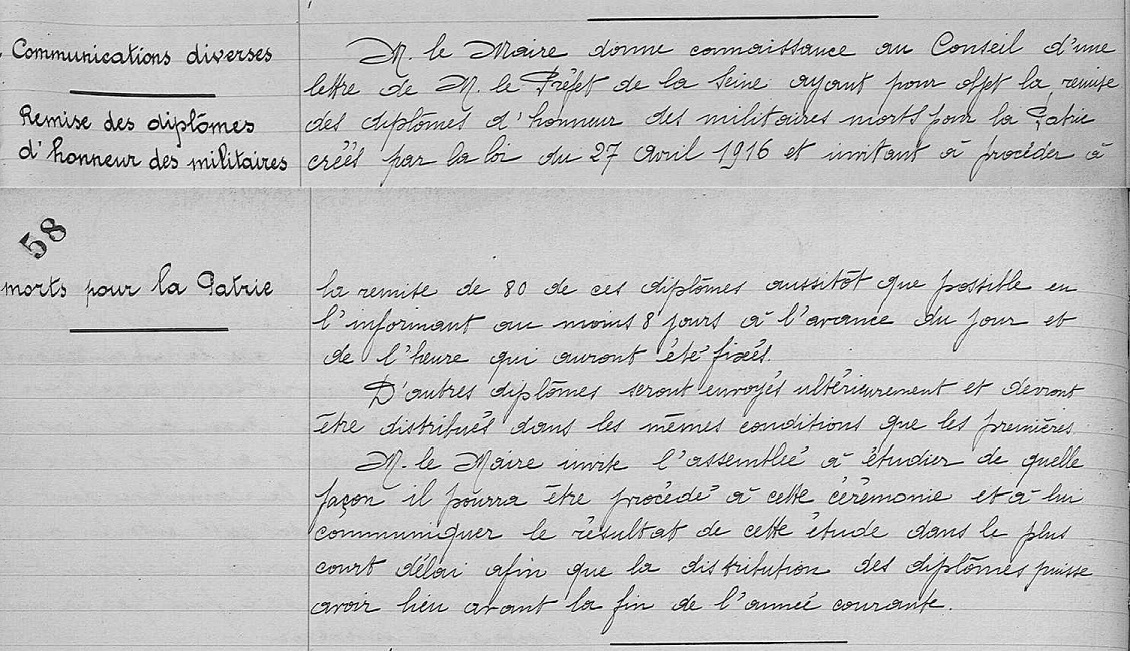 Communications diverses
Remise des diplômes
d'honneur des militaires
M. le Maire donne connaissance au Conseil d'une
lettre de M. le Préfet de la Seine ayant pour objet la remise
des diplômes d'honneur des militaires morts pour la Patrie
créés par la loi du 27 Avril 1916 et invitant à procéder à
58
morts pour la Patrie
la remise de 80 de ces diplômes aussitôt que possible en
l'informant au moins 8 jours à l'avance du jour et
de l'heure qui auront été fixés.
D'autres diplômes seront envoyés ultérieurement et devront
être distribués dans les mêmes conditions que les premières
M. le Maire invite l'assemblée à étudier de quelle
façon il pourra être procédé à cette cérémonie et à lui
communiquer le résultat de cette étude dans le plus
court délai afin que la distribution des diplômes puisse
avoir lieu avant la fin de l'année courante.